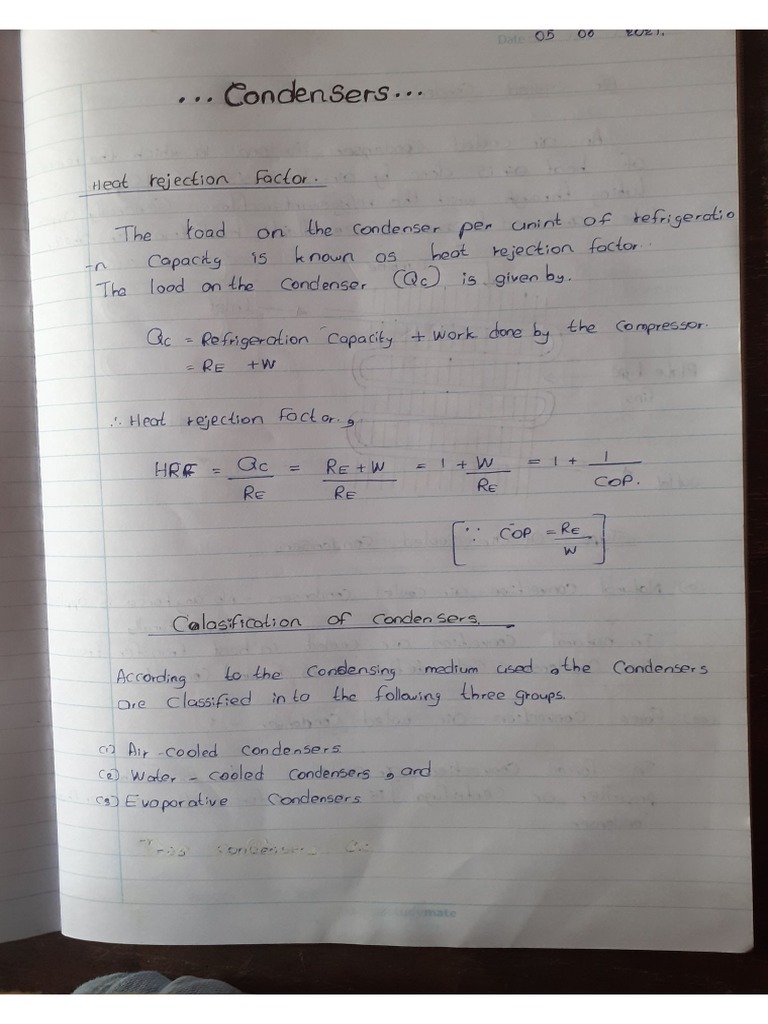 Date 05 06 2021.
... Condensers...
Heat rejection Factor.
The load on the condenser per unint of refrigeratio
-n Capacity is known as heat rejection factor.
The load on the Condenser (Qc) is given by.
Qc = Refrigeration Capacity + work done by the compressor.
= RE + W
∴ Heat rejection factor,
HRF = Qc/RE = RE + W/RE = 1 + W/RE = 1 + 1/COP.
[∵ COP = RE/W]
Calasification of Condensers.
According to the Condensing medium used, the Condensers
are classified in to the following three groups.
(1) Air - cooled condensers
(2) Water - cooled condensers, and
(3) Evaporative Condensers
condensers
mate